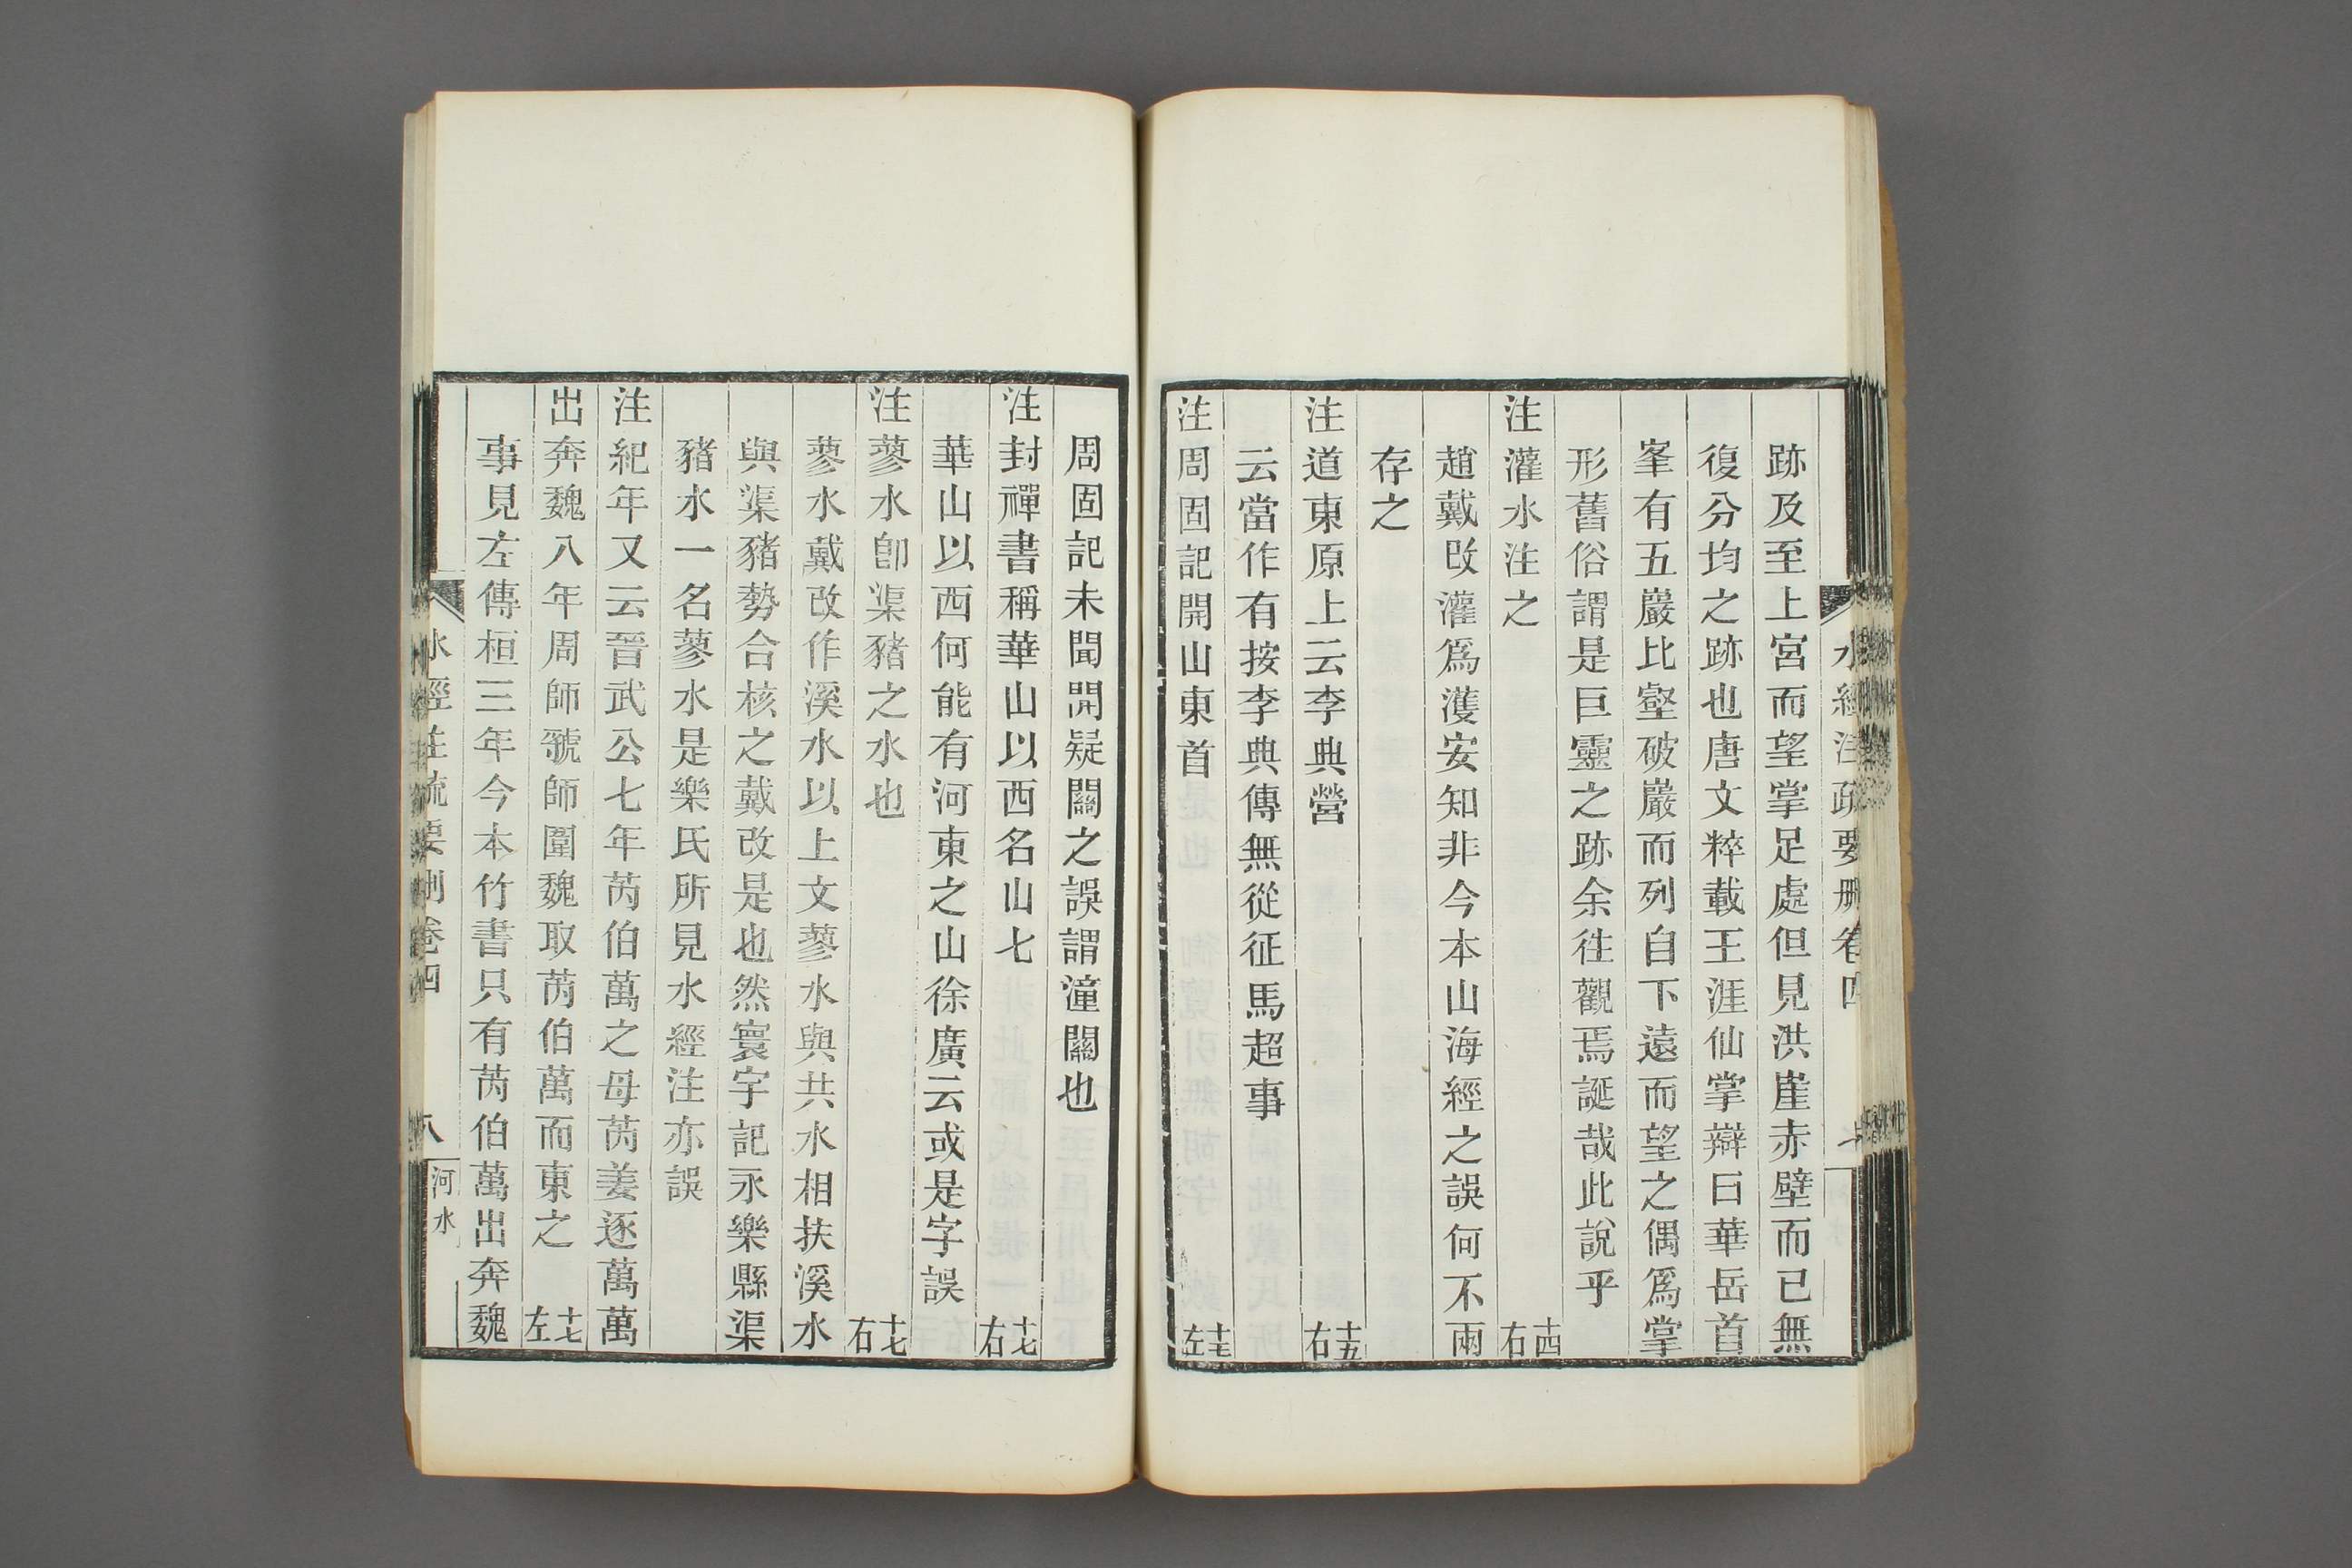 水經注疏要刪卷四
跡及至上宮而望掌足處但見洪崖赤壁而已無
復分均之跡也唐文粹載王涯仙掌辯曰華岳首
峯有五巖比壑破巖而列自下遠而望之偶爲掌
形舊俗謂是巨靈之跡余徃觀焉誕哉此說乎
注灌水注之 十四右
趙戴改灌爲濩安知非今本山海經之誤何不兩
存之
注道東原上云李典營 十五右
云當作有按李典傳無從征馬超事
注周固記開山東首 十五左
周固記未聞開疑關之誤謂潼關也
注封禪書稱華山以西名山七 十七右
華山以西何能有河東之山徐廣云或是字誤
注蓼水卽渠豬之水也 十七右
蓼水戴改作溪水以上文蓼水與共水相扶溪水
與渠豬勢合核之戴改是也然寰宇記永樂縣渠
豬水一名蓼水是樂氏所見水經注亦誤
注紀年又云晉武公七年芮伯萬之母芮姜逐萬萬
出奔魏八年周師虢師圍魏取芮伯萬而東之 十七左
事見左傳桓三年今本竹書只有芮伯萬出奔魏
水經注疏要刪卷四 八 河水